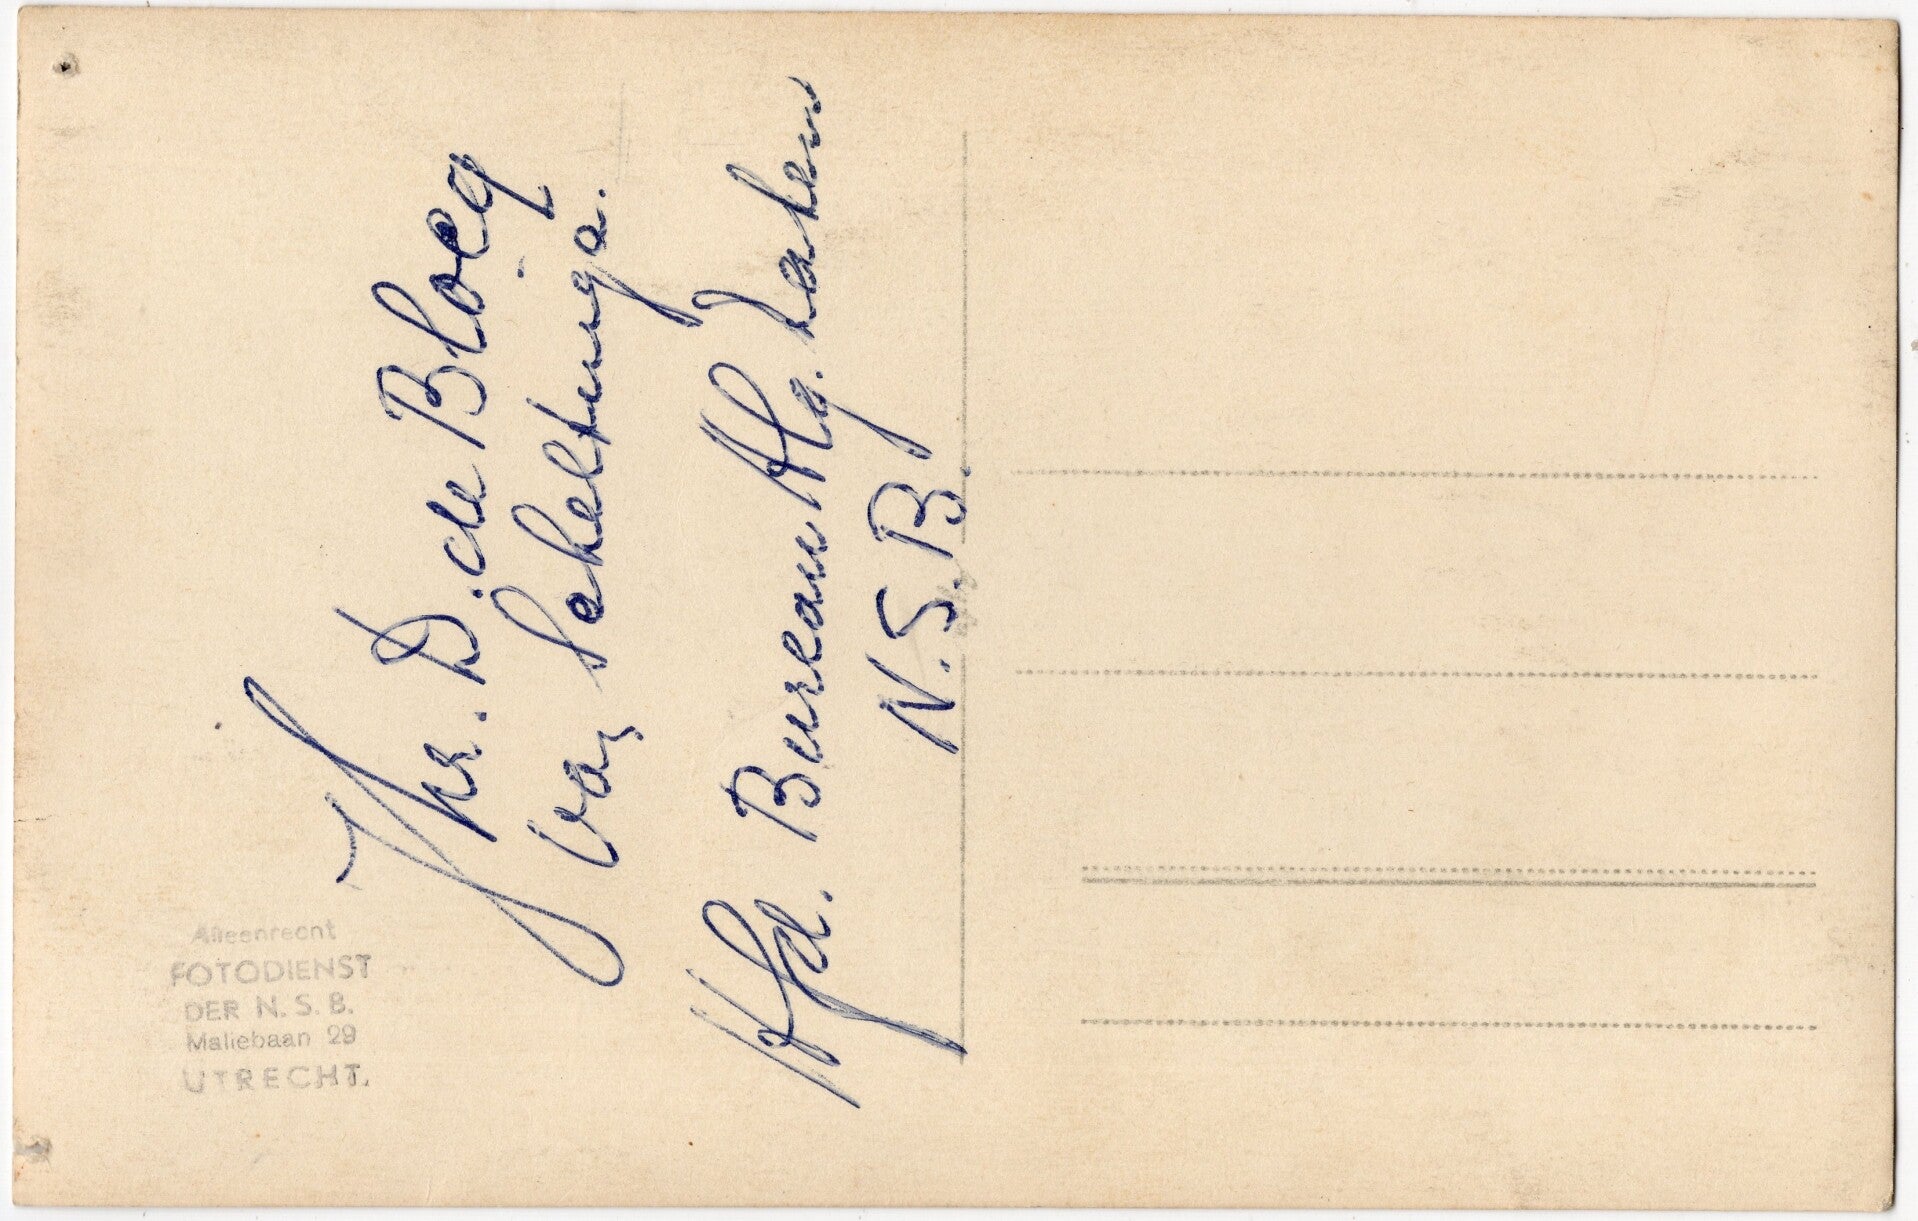 Jhr. D. de Blocq
van Scheltinga.
Hfd. Bureau Alg. Zaken
N.S.B.
Alleenrecht
FOTODIENST
DER N. S. B.
Maliebaan 29
UTRECHT.